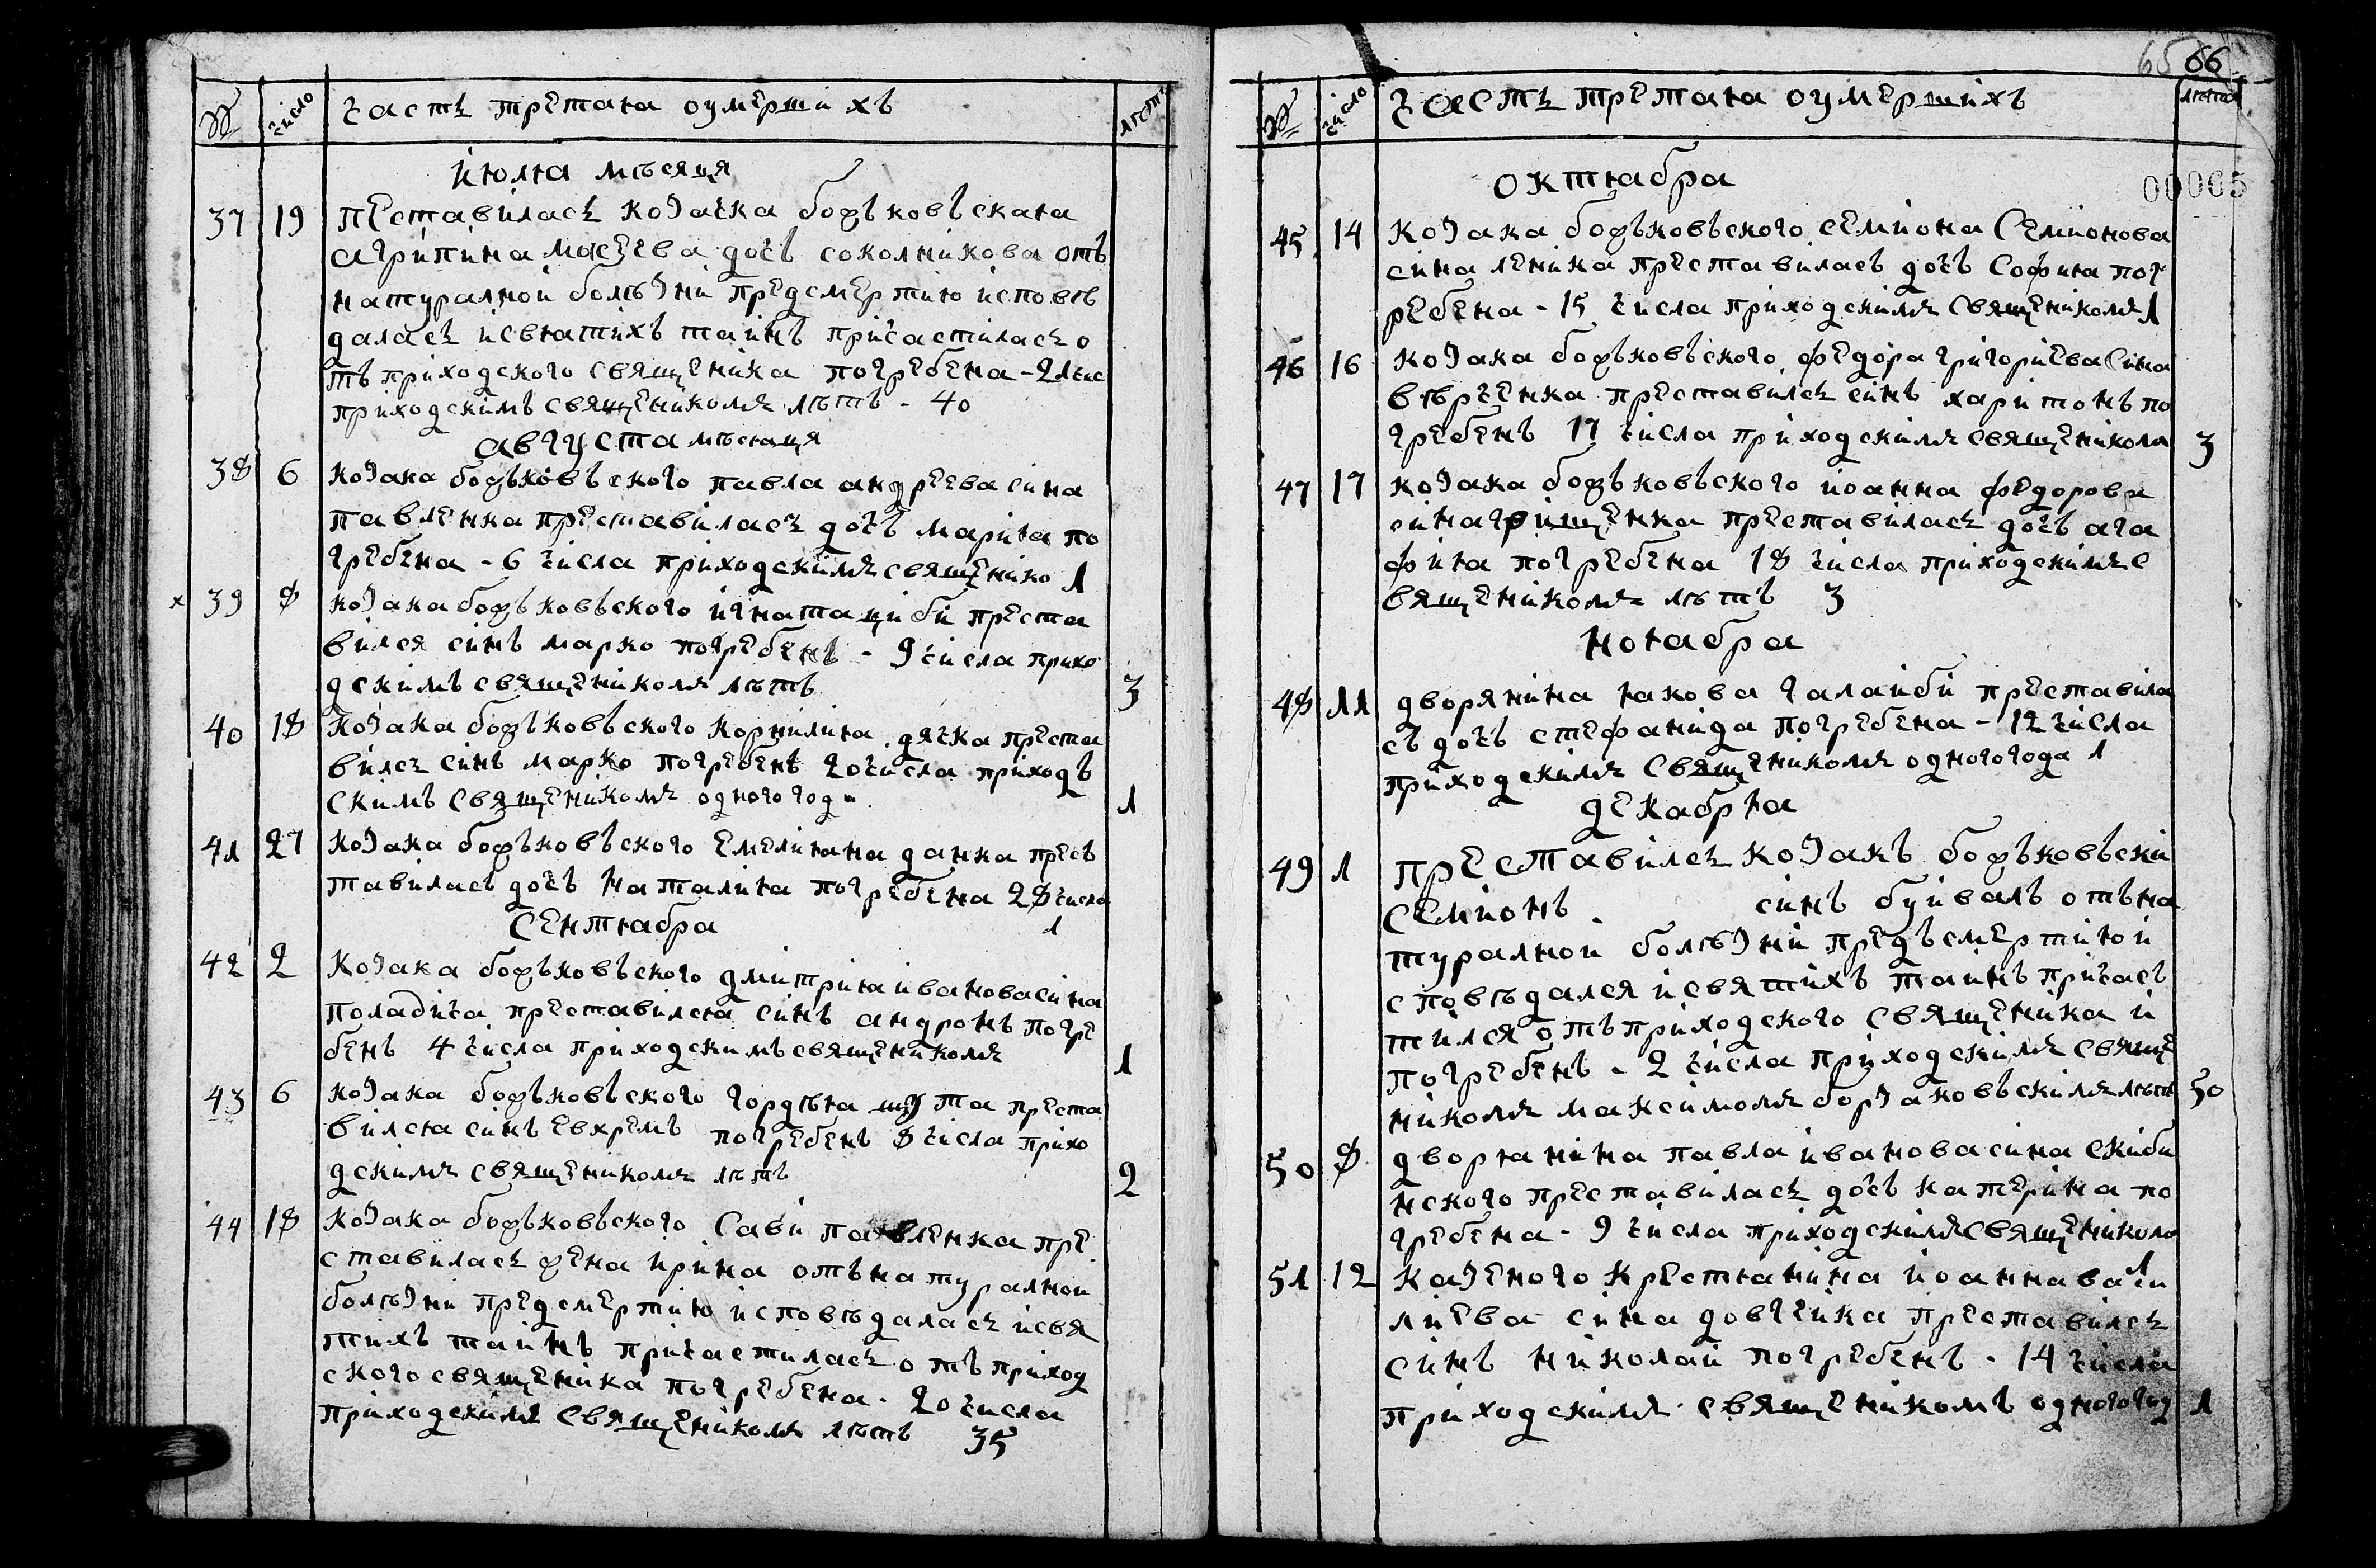 № число часть третая оумершихъ лет
июля месяця
37 19 пеставилась козачка божъковъская
агрипина мосеева дочь соколникова отъ
натуралной болѣзни предсмертию исповѣ
далась и святихъ таинъ причастилась о
тъ приходского священика погребена - 21 чис
приходскимъ священикомъ лѣтъ - 40
августа мѣсяця
38 6 козака божъковъского павла андреева сина
павленка преставилась дочъ мария по
гребена - 6 числа приходскимъ священико 1
х 39 8 козака божъковъского игната циби преста
вился синъ марко погребенъ - 9 числа прихо
дскимъ священикомъ лѣтъ 3
40 18 козака божъковъского корнилия дячка преста
вилсъ синъ марко погребенъ 20 числа приходъ
скимъ священикомъ одного год 1
41 27 козака божъковъского емелияна данка пресъ
тавилась дочъ наталия погребена 28 числа
сентября 1
42 2 козака божъковъского дмитрия иванова сина
поладича преставился синъ андронъ погре
бенъ 4 числа приходскимъ священикомъ 1
43 6 козака божъковъского гордѣя шута преста
вился синъ евхремъ погребенъ 8 числа прихо
дскимъ священикомъ лѣтъ 2
44 18 козака божъковъского сави павленка пре
ставилась жена ирина отъ натуралной
болѣзни предсмертию исповѣдалась и свя
тихъ таинъ причастилась отъ приход
ского священика погребена - 20 числа
приходскимъ священикомъ лѣтъ 35
65 66
№ число часть третая оумершихъ лета
октября
00065
45 14 козака божъковъского семиона семионова
сина леника преставилась дочъ софия пог
ребена - 15 числа приходскимъ священикомъ 1
46 16 козака божъковъского федора григориева сина
преставилсъ синъ харитонъ по
гребенъ 17 числа приходскимъ священиком 3
47 17 козака божъковъского иоанна федорова
сина грищенка преставилась дочъ ага
фия погребена 18 числа приходскимъ с
вященикомъ лѣтъ 3
ноября
48 11 дворянина якова галайби преставила
съ дочъ стефанида погребена - 12 числа
приходскимъ священикомъ одного года 1
декабря
49 1 преставилсъ козакъ божъковъски
семионъ синъ буйвалъ отъ на
туралной болѣзни предъсмертию и
сповѣдался и святихъ таинъ причасъ
тился отъ приходского священика и
погребенъ - 2 числа приходскимъ свяще
никомъ максимомъ борзаковъскимъ лѣтъ 50
50 8 дворянина павла иванова сина скиби
нского преставилась дочъ катерина по
гребена - 9 числа приходскимъ священиком
1
51 12 казеного крестянина иоанна васи
лиева сина довгейка преставилсъ
синъ николай погребенъ - 14 числа
приходскимъ священикомъ одного год 1